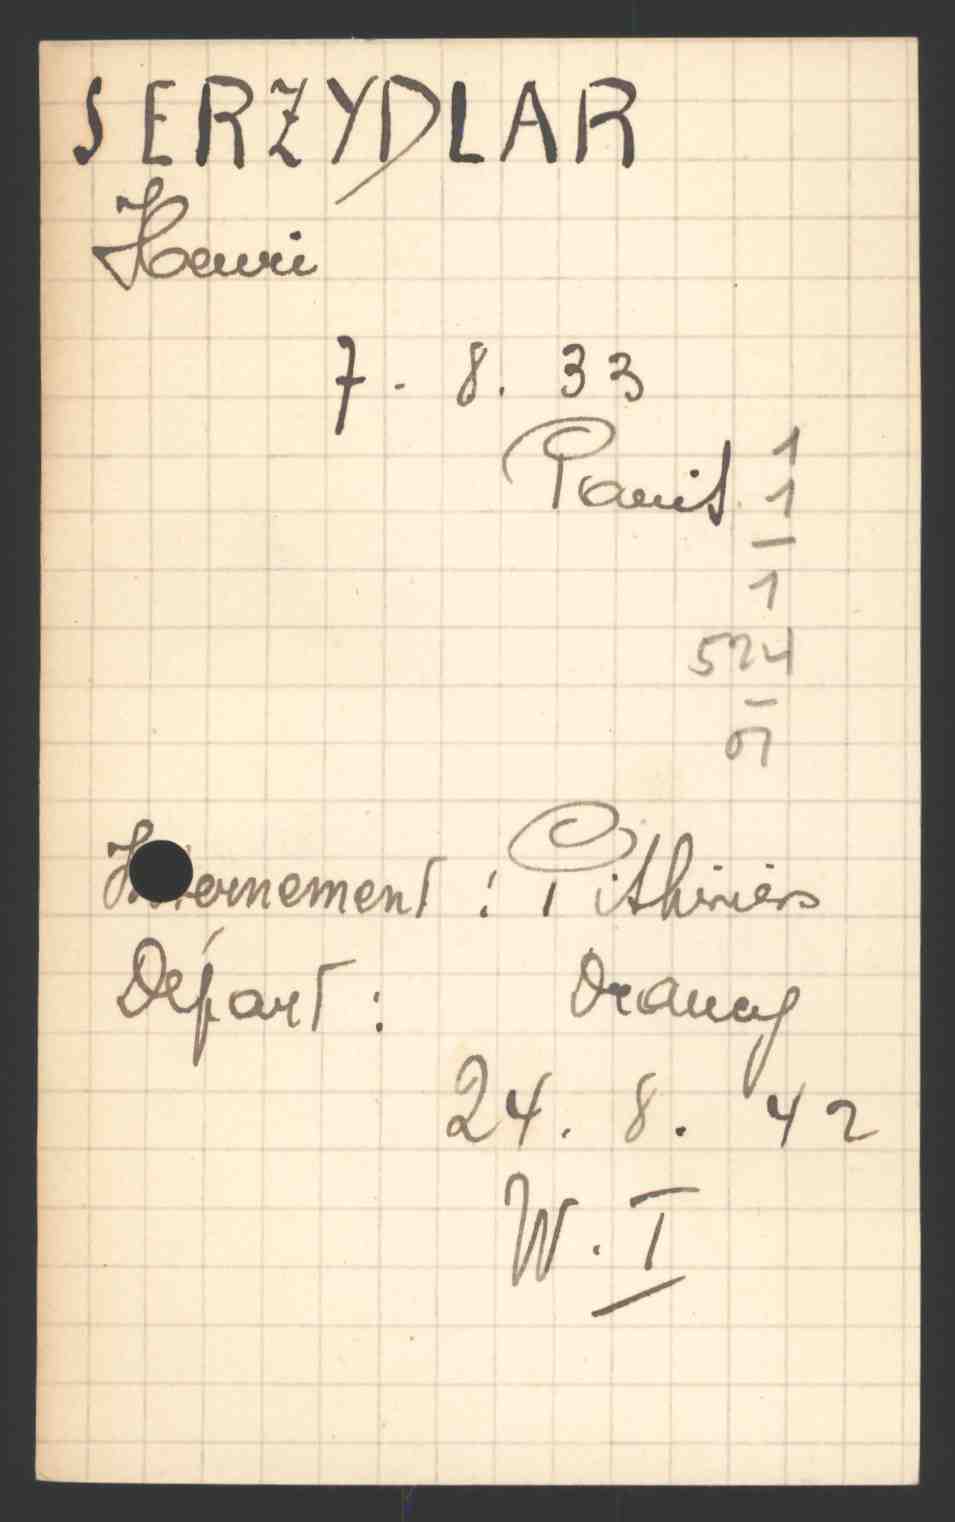 SERZYDLAR
Henri
7. 8. 33
Paris 1
1
1
524
Internement : Pithiviers
Départ : Drancy
24. 8. 42
W. I